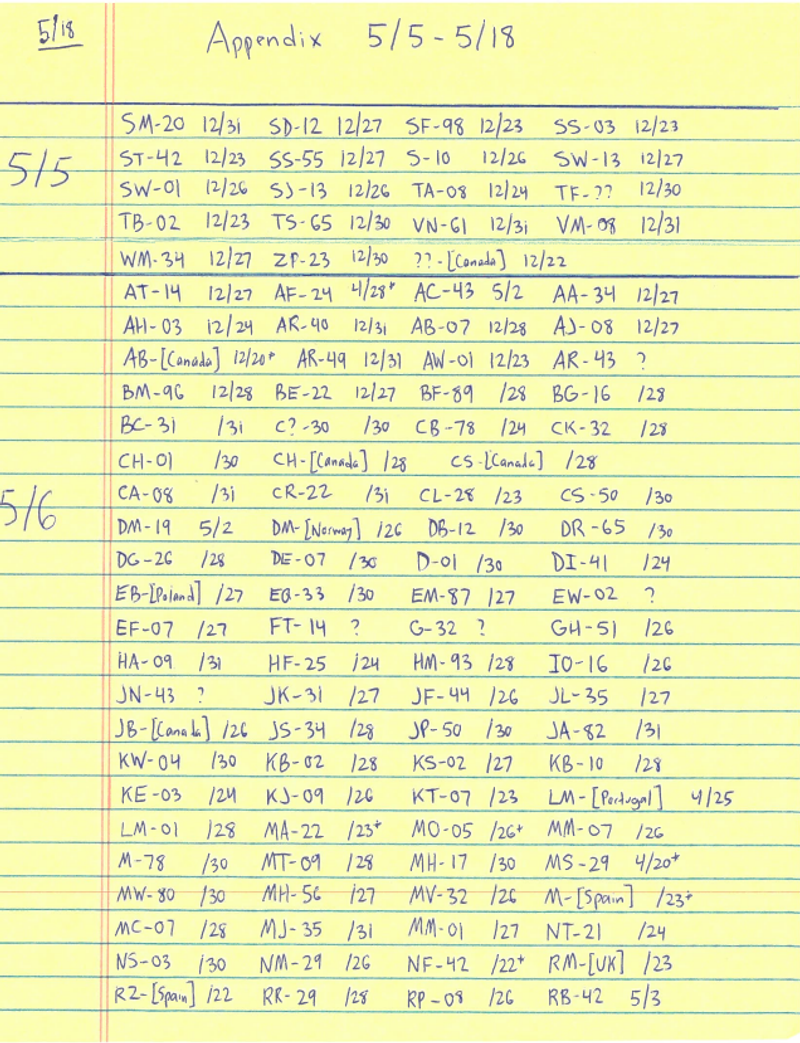 5/18 Appendix 5/5 - 5/18
SM-20 12/31 SD-12 12/27 SF-98 12/23 SS-03 12/23
5/5
ST-42 12/23 SS-55 12/27 S-10 12/26 SW-13 12/27
SW-01 12/26 SJ-13 12/26 TA-08 12/24 TF-?? 12/30
TB-02 12/23 TS-65 12/30 VN-61 12/31 VM-08 12/31
WM-34 12/27 ZP-23 12/30 ??-[Canada] 12/22
AT-14 12/27 AF-24 4/28+ AC-43 5/2 AA-34 12/27
AH-03 12/24 AR-40 12/31 AB-07 12/28 AJ-08 12/27
AB-[Canada] 12/20+ AR-49 12/31 AW-01 12/23 AR-43 ?
BM-96 12/28 BE-22 12/27 BF-89 /28 BG-16 /28
BC-31 /31 C?-30 /30 CB-78 /24 CK-32 /28
CH-01 /30 CH-[Canada] /28 CS-[Canada] /28
5/6
CA-08 /31 CR-22 /31 CL-28 /23 CS-50 /30
DM-19 5/2 DM-[Norway] /26 DB-12 /30 DR-65 /30
DG-26 /28 DE-07 /30 D-01 /30 DI-41 /24
EB-[Poland] /27 EQ-33 /30 EM-87 /27 EW-02 ?
EF-07 /27 FT-14 ? G-32 ? GH-51 /26
HA-09 /31 HF-25 /24 HM-93 /28 IO-16 /26
JN-43 ? JK-31 /27 JF-44 /26 JL-35 /27
JB-[Canada] /26 JS-34 /28 JP-50 /30 JA-82 /31
KW-04 /30 KB-02 /28 KS-02 /27 KB-10 /28
KE-03 /24 KJ-09 /26 KT-07 /23 LM-[Portugal] 4/25
LM-01 /28 MA-22 /23+ MO-05 /26+ MM-07 /26
M-78 /30 MT-09 /28 MH-17 /30 MS-29 4/20+
MW-80 /30 MH-56 /27 MV-32 /26 M-[Spain] /23+
MC-07 /28 MJ-35 /31 MM-01 /27 NT-21 /24
NS-03 /30 NM-29 /26 NF-42 /22+ RM-[UK] /23
RZ-[Spain] /22 RR-29 /28 RP-08 /26 RB-42 5/3